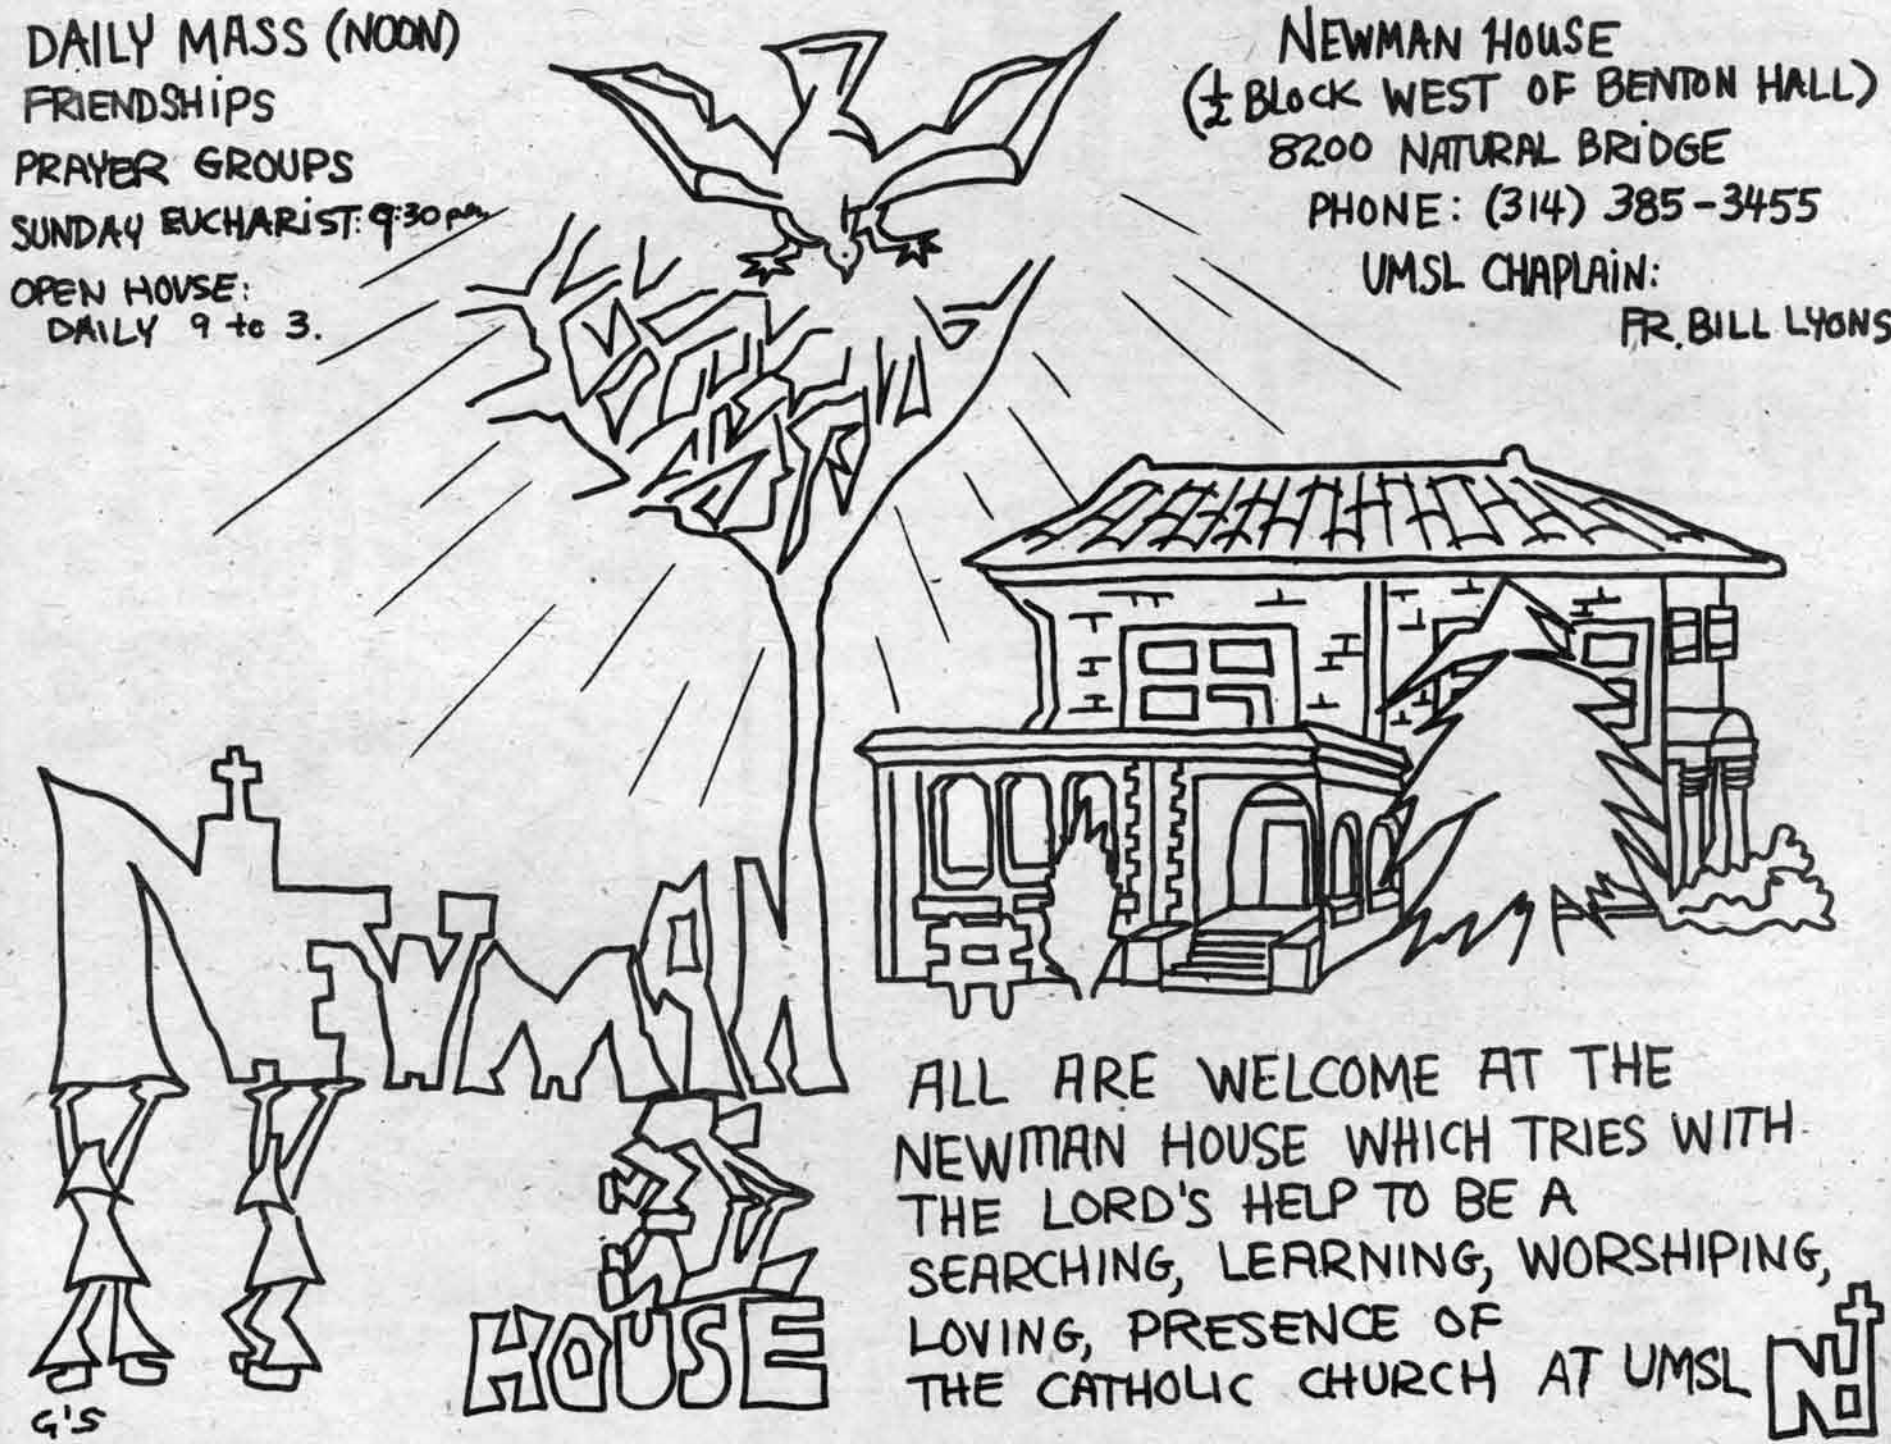 DAILY MASS (NOON)
FRIENDSHIPS
PRAYER GROUPS
SUNDAY EUCHARIST: 9:30 pm
OPEN HOUSE:
DAILY 9 to 3.
NEWMAN HOUSE
(½ BLOCK WEST OF BENTON HALL)
8200 NATURAL BRIDGE
PHONE: (314) 385-3455
UMSL CHAPLAIN:
FR. BILL LYONS
NEWMAN
HOUSE
ALL ARE WELCOME AT THE
NEWMAN HOUSE WHICH TRIES WITH
THE LORD'S HELP TO BE A
SEARCHING, LEARNING, WORSHIPING,
LOVING, PRESENCE OF
THE CATHOLIC CHURCH AT UMSL
G'S